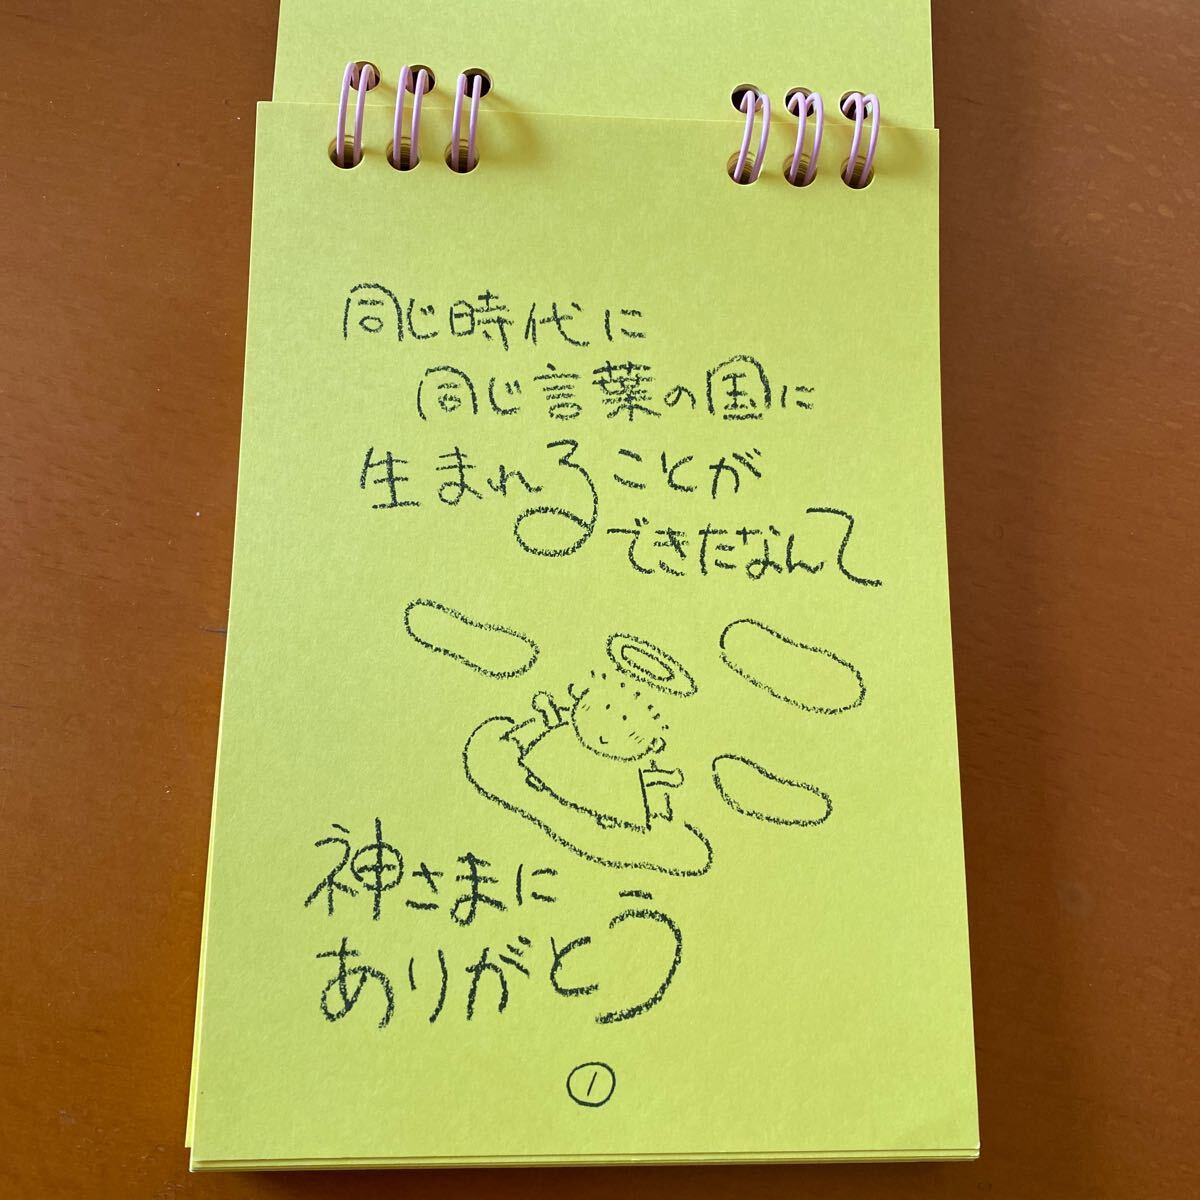 同じ時代に
同じ言葉の国に
生まれることが
できたなんて
神さまに
ありがとう
①